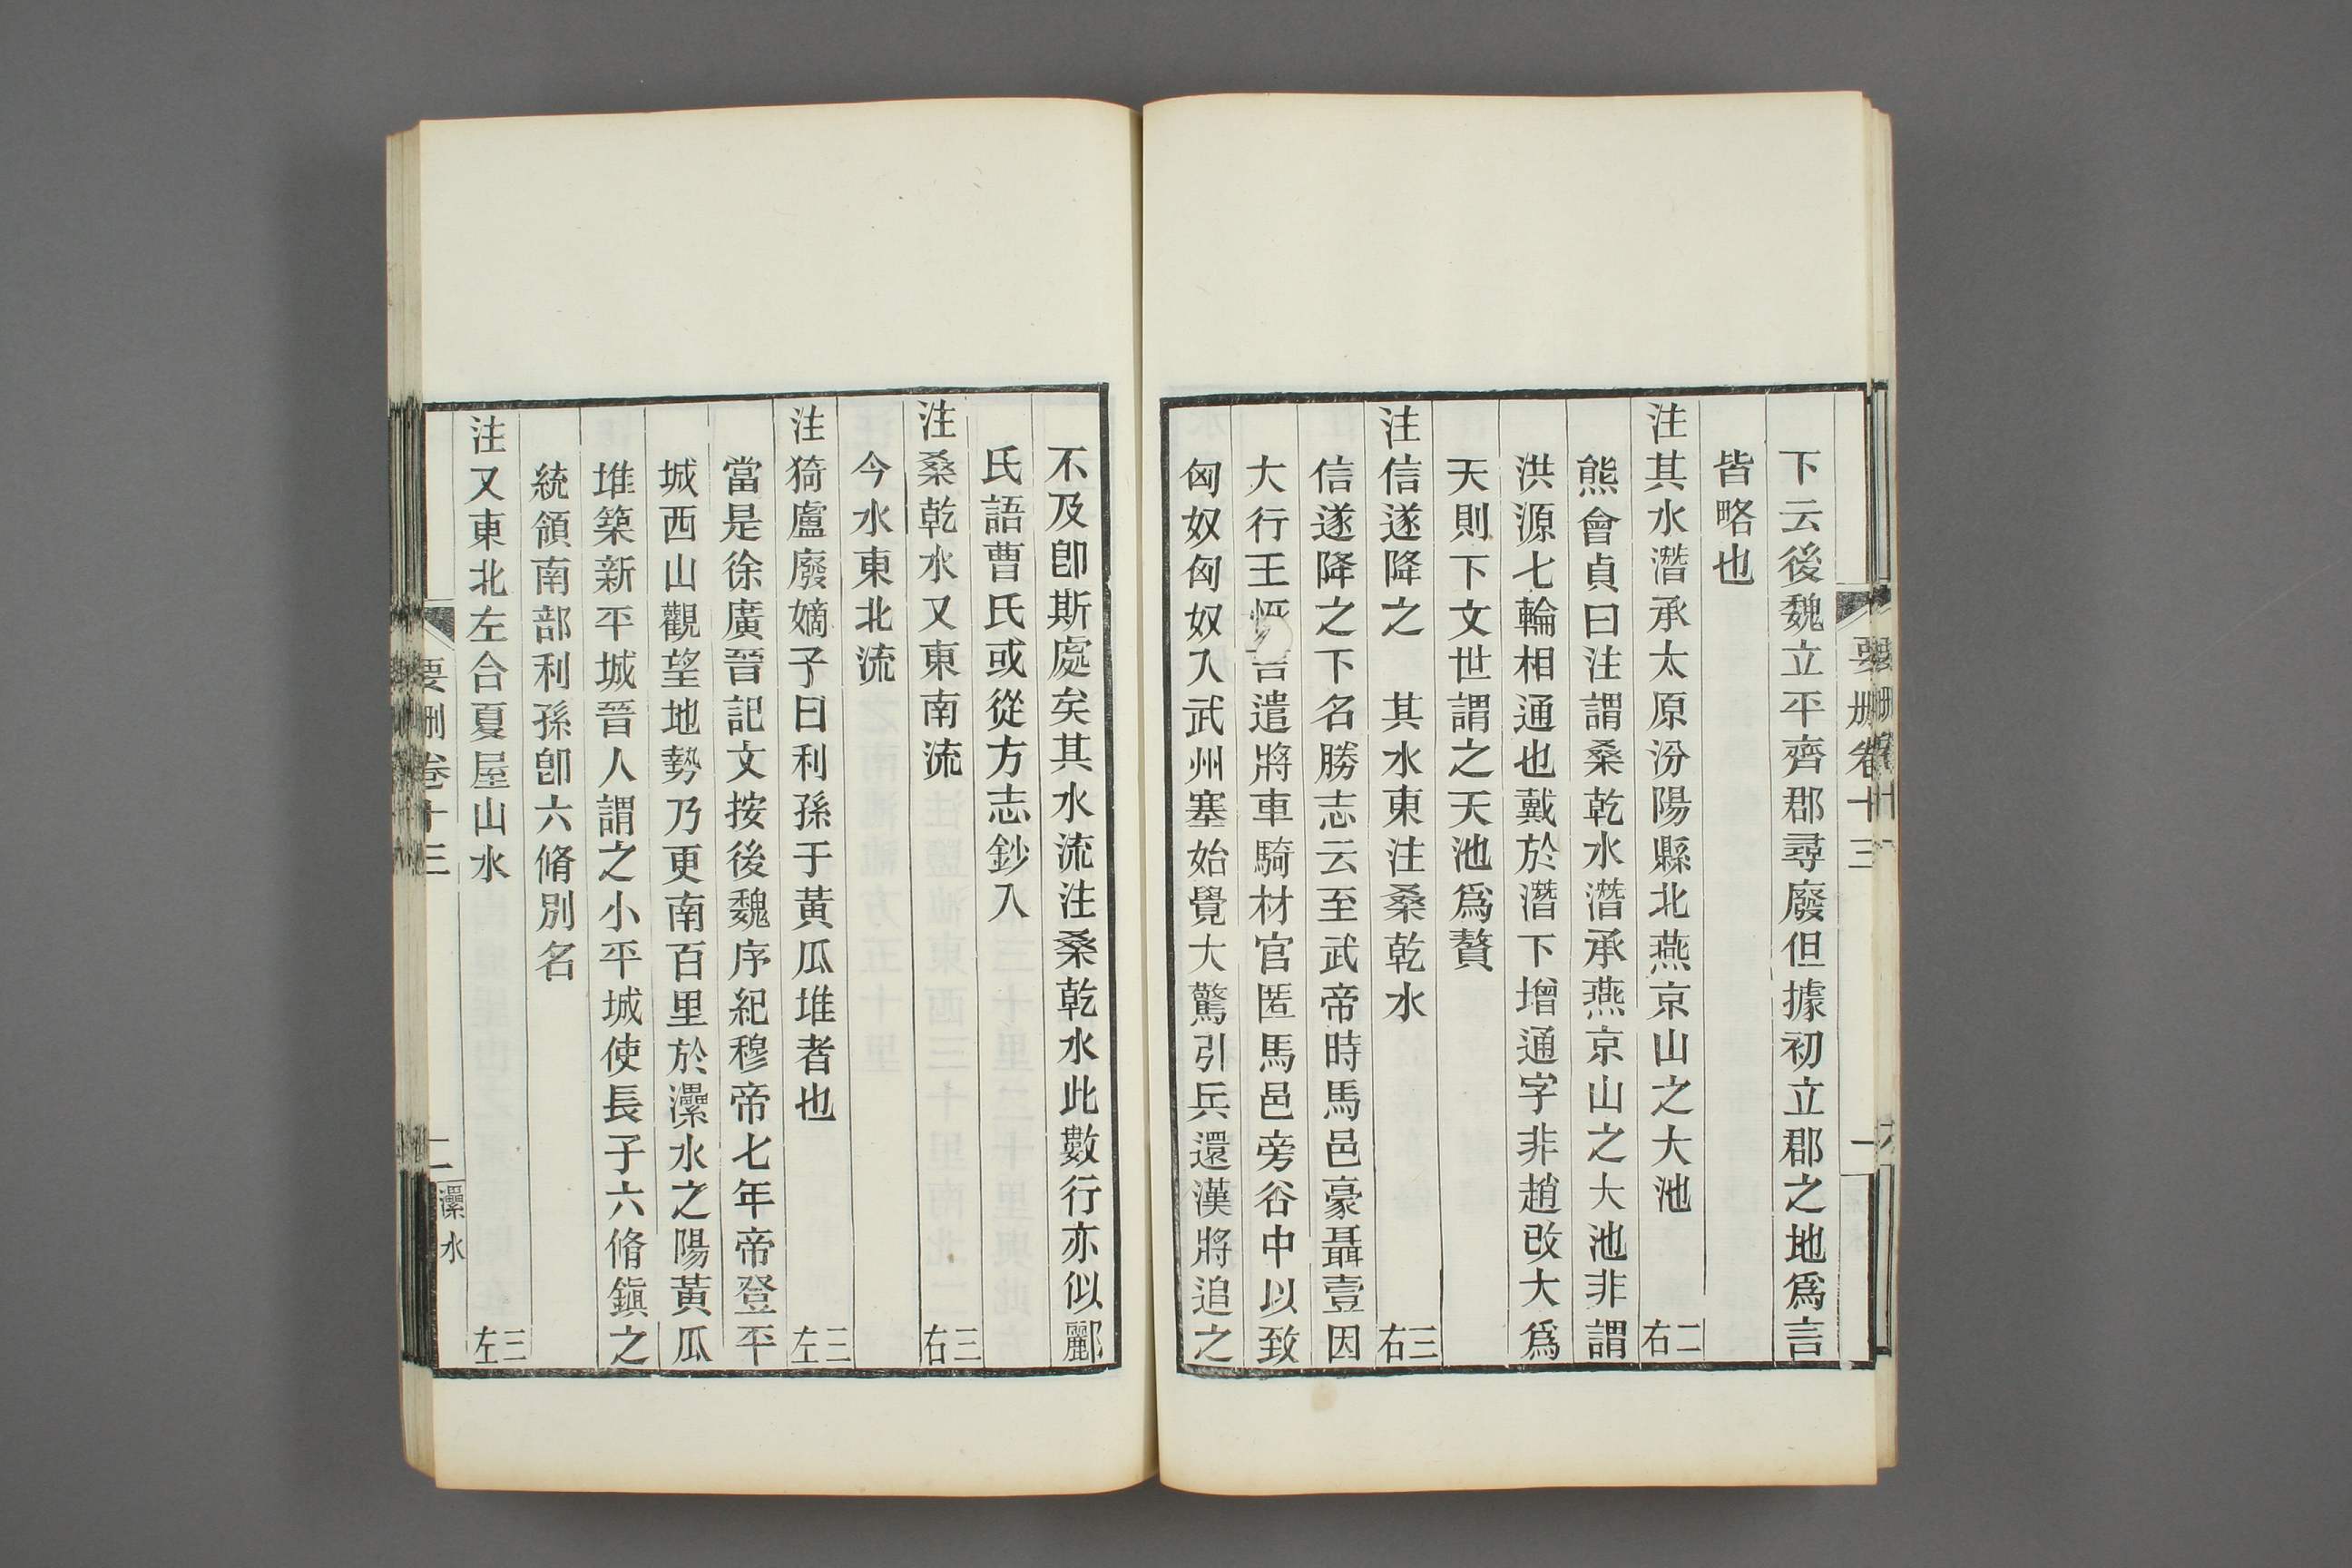 要刪卷十三
一
下云後魏立平齊郡尋廢但據初立郡之地爲言
皆略也
注其水潛承太原汾陽縣北燕京山之大池 二右
熊會貞曰注謂桑乾水潛承燕京山之大池非謂
洪源七輪相通也戴於潛下增通字非趙改大爲
天則下文世謂之天池爲贅
注信遂降之 其水東注桑乾水 三右
信遂降之下名勝志云至武帝時馬邑豪聶壹因
大行王恢言遣將車騎材官匿馬邑旁谷中以致
匈奴匈奴入武州塞始覺大驚引兵還漢將追之
不及卽斯處矣其水流注桑乾水此數行亦似酈
氏語曹氏或從方志鈔入
注桑乾水又東南流 三右
今水東北流
注猗盧廢嫡子曰利孫于黃瓜堆者也 三左
當是徐廣晉記文按後魏序紀穆帝七年帝登平
城西山觀望地勢乃更南百里於㶟水之陽黃瓜
堆築新平城晉人謂之小平城使長子六脩鎭之
統領南部利孫卽六脩別名
注又東北左合夏屋山水 三左
要刪卷十三
二
㶟水